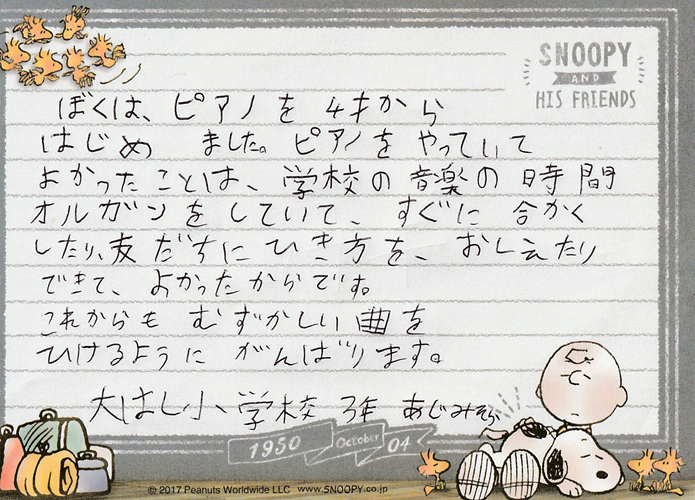 SNOOPY
AND
HIS FRIENDS
ぼくは、ピアノを 4才から
はじめ ました。ピアノを やっていて
よかったことは、学校の 音楽の 時間
オルガンを していて、すぐに 合かく
したり、友だちに ひき方を、おしえたり
できて、よかったからです。
これからも むずかしい 曲を
ひけるように がんばります。
大はし小学校 3年 あじみそら
1950 October 04
© 2017 Peanuts Worldwide LLC www.SNOOPY.co.jp